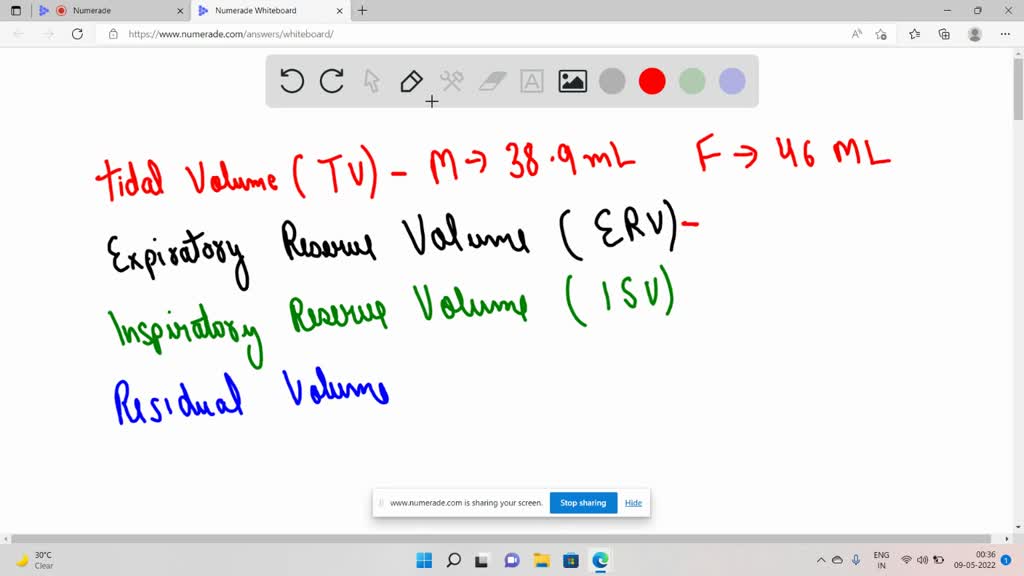 Numerade
Numerade Whiteboard
https://www.numerade.com/answers/whiteboard/
tidal Volume (TV) - M → 38.9 mL F → 46 ML
Expiratory Reserve Volume (ERV) -
Inspiratory Reserve Volume (ISV)
Residual Volume
www.numerade.com is sharing your screen. Stop sharing Hide
30°C
Clear
ENG
IN
00:36
09-05-2022
1